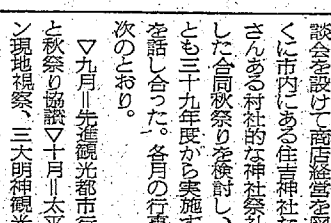 談会を設けて商店経営を
くに市内にある住吉神社な
さんある村社的な神社祭り
した合同秋祭りを検討し、
とも三十九年度から実施す
を話し合った。各月の行事
次のとおり。
▽九月＝先進観光都市行
と秋祭り協議▽十月＝太平
ン現地視察、三大明神観光